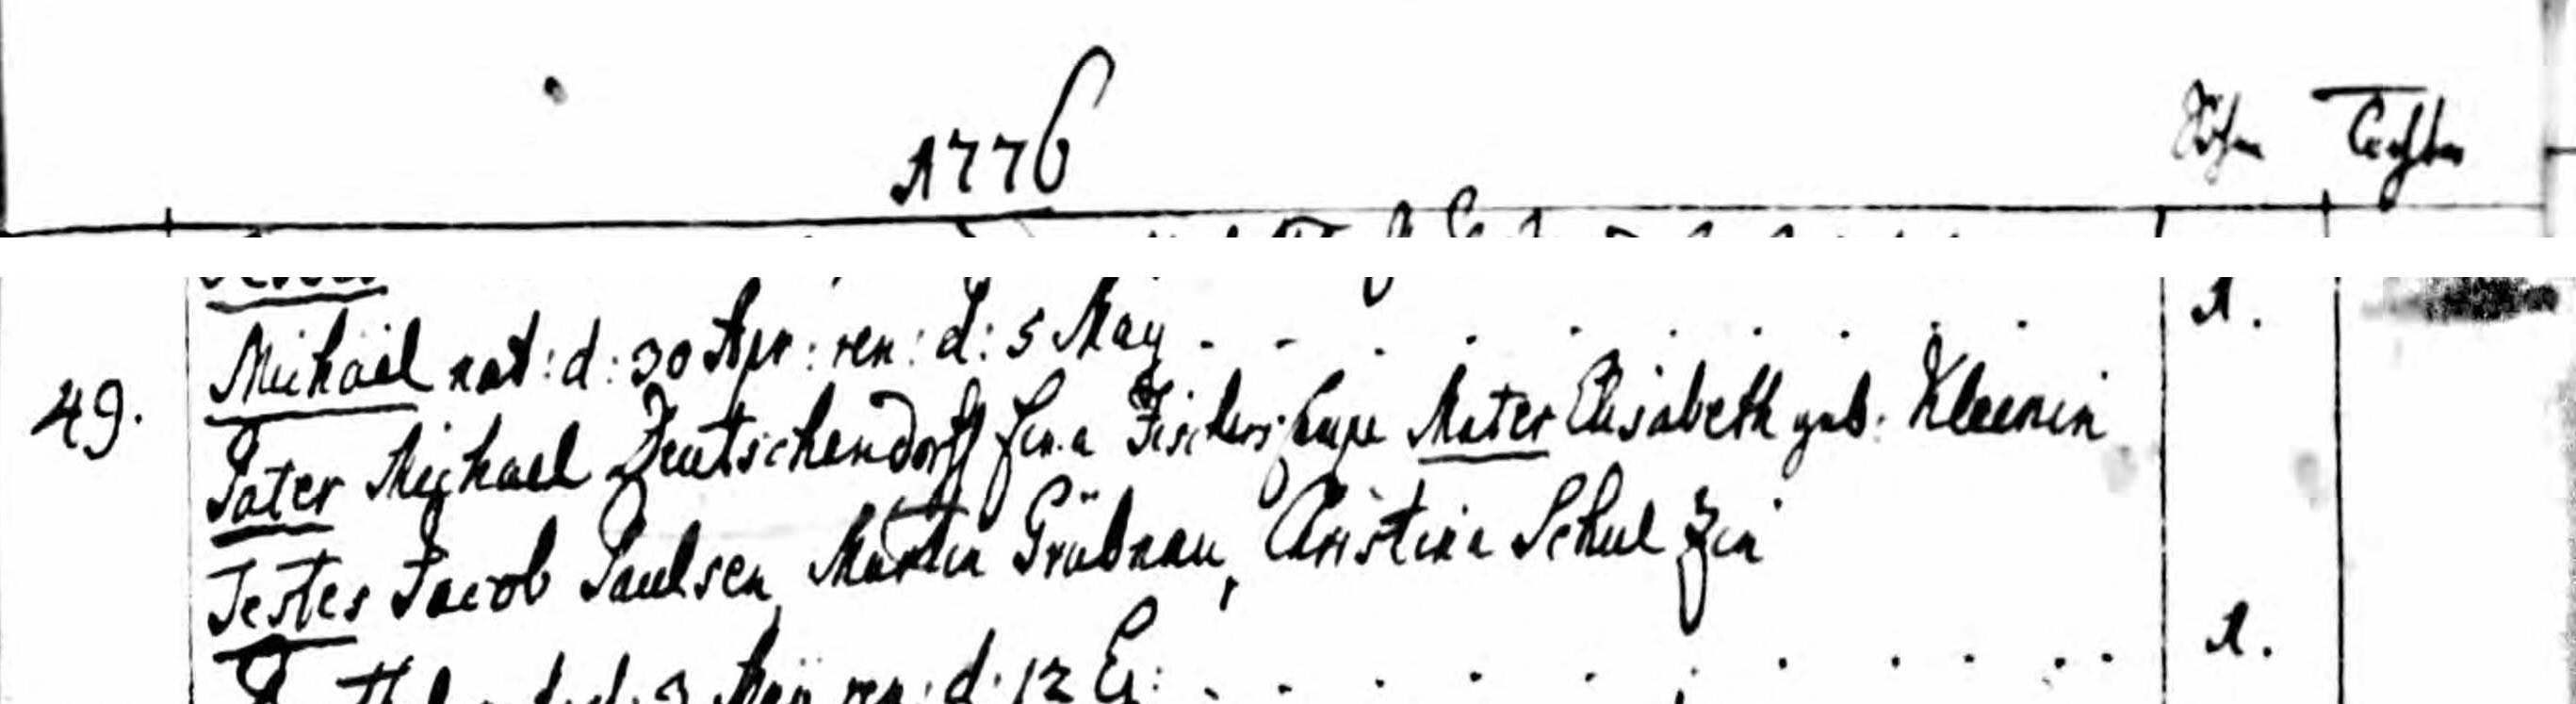 1776 Söhne Töchter
Michael nat: d: 30 Apr: ren: d: 5 May 1.
49. Pater Michael Deutschendorff Mater Elisabeth geb. Kleenin
Testes Jacob Paulsen, Martin Grübnau, Christina Schulzin
ren: d: 12 1.